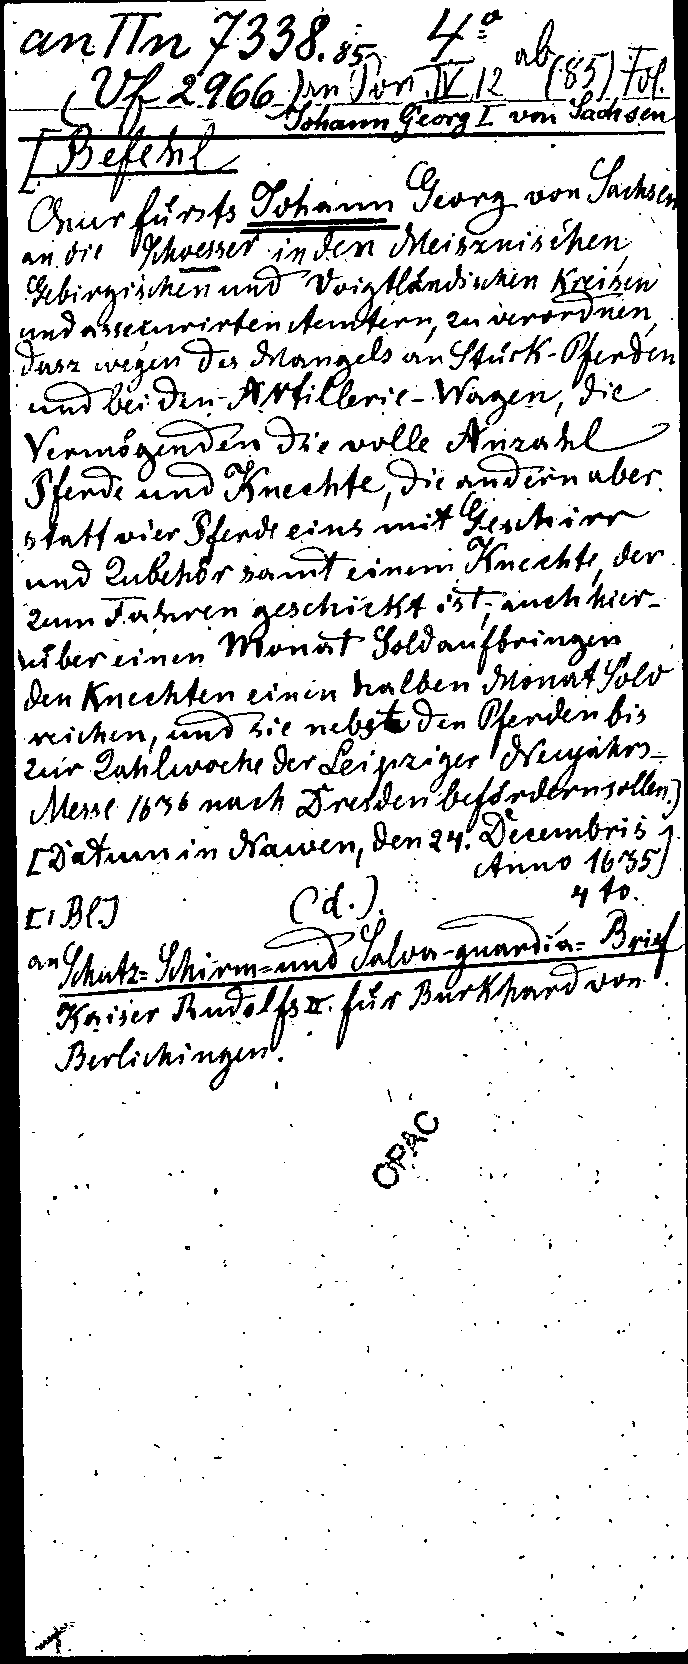 an Πn 7338.85 4º
(Vf 2966) an Pon. IV, 12 ab (85) Fol.
Johann Georg I von Sachsen
[Befehl
Churfürsts Johann Georg von Sachsen
an die Schoesser in den Meisznischen,
Gebirgischen und Voigtländischen Kreisen
und assecurirten Aemtern, zu verordnen,
dasz wegen des Mangels an Stück-Pferden
und bei den Artillerie-Wagen, die
Vermögenden die volle Anzahl
Pferde und Knechte, die andern aber
statt vier Pferde eins mit Geschirr
und Zubehör samt einem Knechte, der
zum Fahren geschickt ist, auch hier-
über einen Monat Sold aufbringen
den Knechten einen halben Monat Sold
reichen, und sie nebst den Pferden bis
zur Zahlwoche der Leipziger Neujahrs-
Messe 1636 nach Dresden befördern sollen.]
[Datum in Nawen, den 24. Decembris
Anno 1635]
[1 Bl] (d.). 4to.
an Schutz= Schirm= und Salva-guardia= Brief
Kaiser Rudolfs II. für Burkhard von
Berlichingen.
OPAC